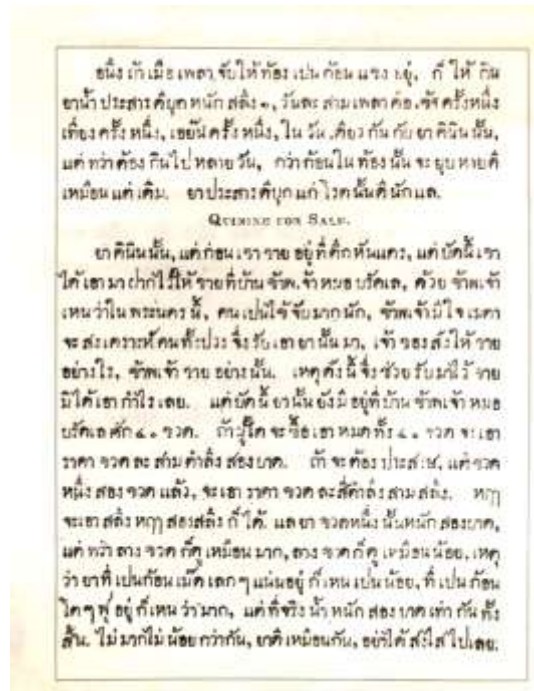 อนึ่งถ้าเมื่อเพลาจับให้ท้องเปนก้อนแขงอยู่, ก็ให้กิน
ยาน้ำประสารดีบุกหนักสลึง ๑, วันละสามเพลาคือ, เช้าครั้งหนึ่ง
เที่ยงครั้งหนึ่ง, เยอยนครั้งหนึ่ง, ในวันเดียวกันกับยาคินินนั้น,
แต่ทว่าต้องกินไปหลายวัน, กว่าก้อนในท้องนั้นจะยุบหายดี
เหมือนแต่เดิม. ยาประสารดีบุกแก้โรคนั้นดีนักแล.
QUININE FOR SALE.
ยาคินินนั้น, แต่ก่อนเราขายอยู่ที่ตึกหันแตร, แต่บัดนี้เรา
ได้เอามาฝากไว้ให้ขายที่บ้านข้าพเจ้าหมอบรัดเล, ด้วยข้าพเจ้า
เหนว่าในพระนครนี้, คนเปนไข้จับมากนัก, ข้าพเจ้ามีใจเมตา
จะสงเคราะห์คนทั้งปวงจึ่งรับเอายานั้นมา, เจ้าของสั่งให้ขาย
อย่างไร, ข้าพเจ้าขายอย่างนั้น. เหตุดังนี้จึ่งช่วยรับมาไว้ขาย
มิได้เอากำไรเลย. แต่บัดนี้ยานั้นยังมีอยู่ที่บ้านข้าพเจ้าหมอ
บรัดเลสัก ๔๐ ขวด. ถ้าผู้ใดจะซื้อเอาหมดทั้ง ๔๐ ขวดจะเอา
ราคาขวดละสามตำลึงสองบาด. ถ้าจะต้องประสงษ์, แต่ขวด
หนึ่งสองขวดแล้ว, จะเอาราคาขวดละสี่ตำลึงสามสลึง. หฤๅ
จะเอาสลึงหฤๅสองสลึงก็ได้. แลยาขวดหนึ่งนั้นหนักสองบาด,
แต่ทว่าลางขวดก็ดูเหมือนมาก, ลางขวดก็ดูเหมือนน้อย, เหตุ
ว่ายาที่เปนก้อนเม็ดเลกๆ แน่นอยู่ก็เหนเปนน้อย, ที่เปนก้อน
โตๆ ฟูอยู่ก็เหนว่ามาก, แต่ที่จริงน้ำหนักสองบาดเท่ากันทั้ง
สิ้น. ไม่มากไม่น้อยกว่ากัน, ยาดีเหมือนกัน, อย่าได้สงไสไปเลย.